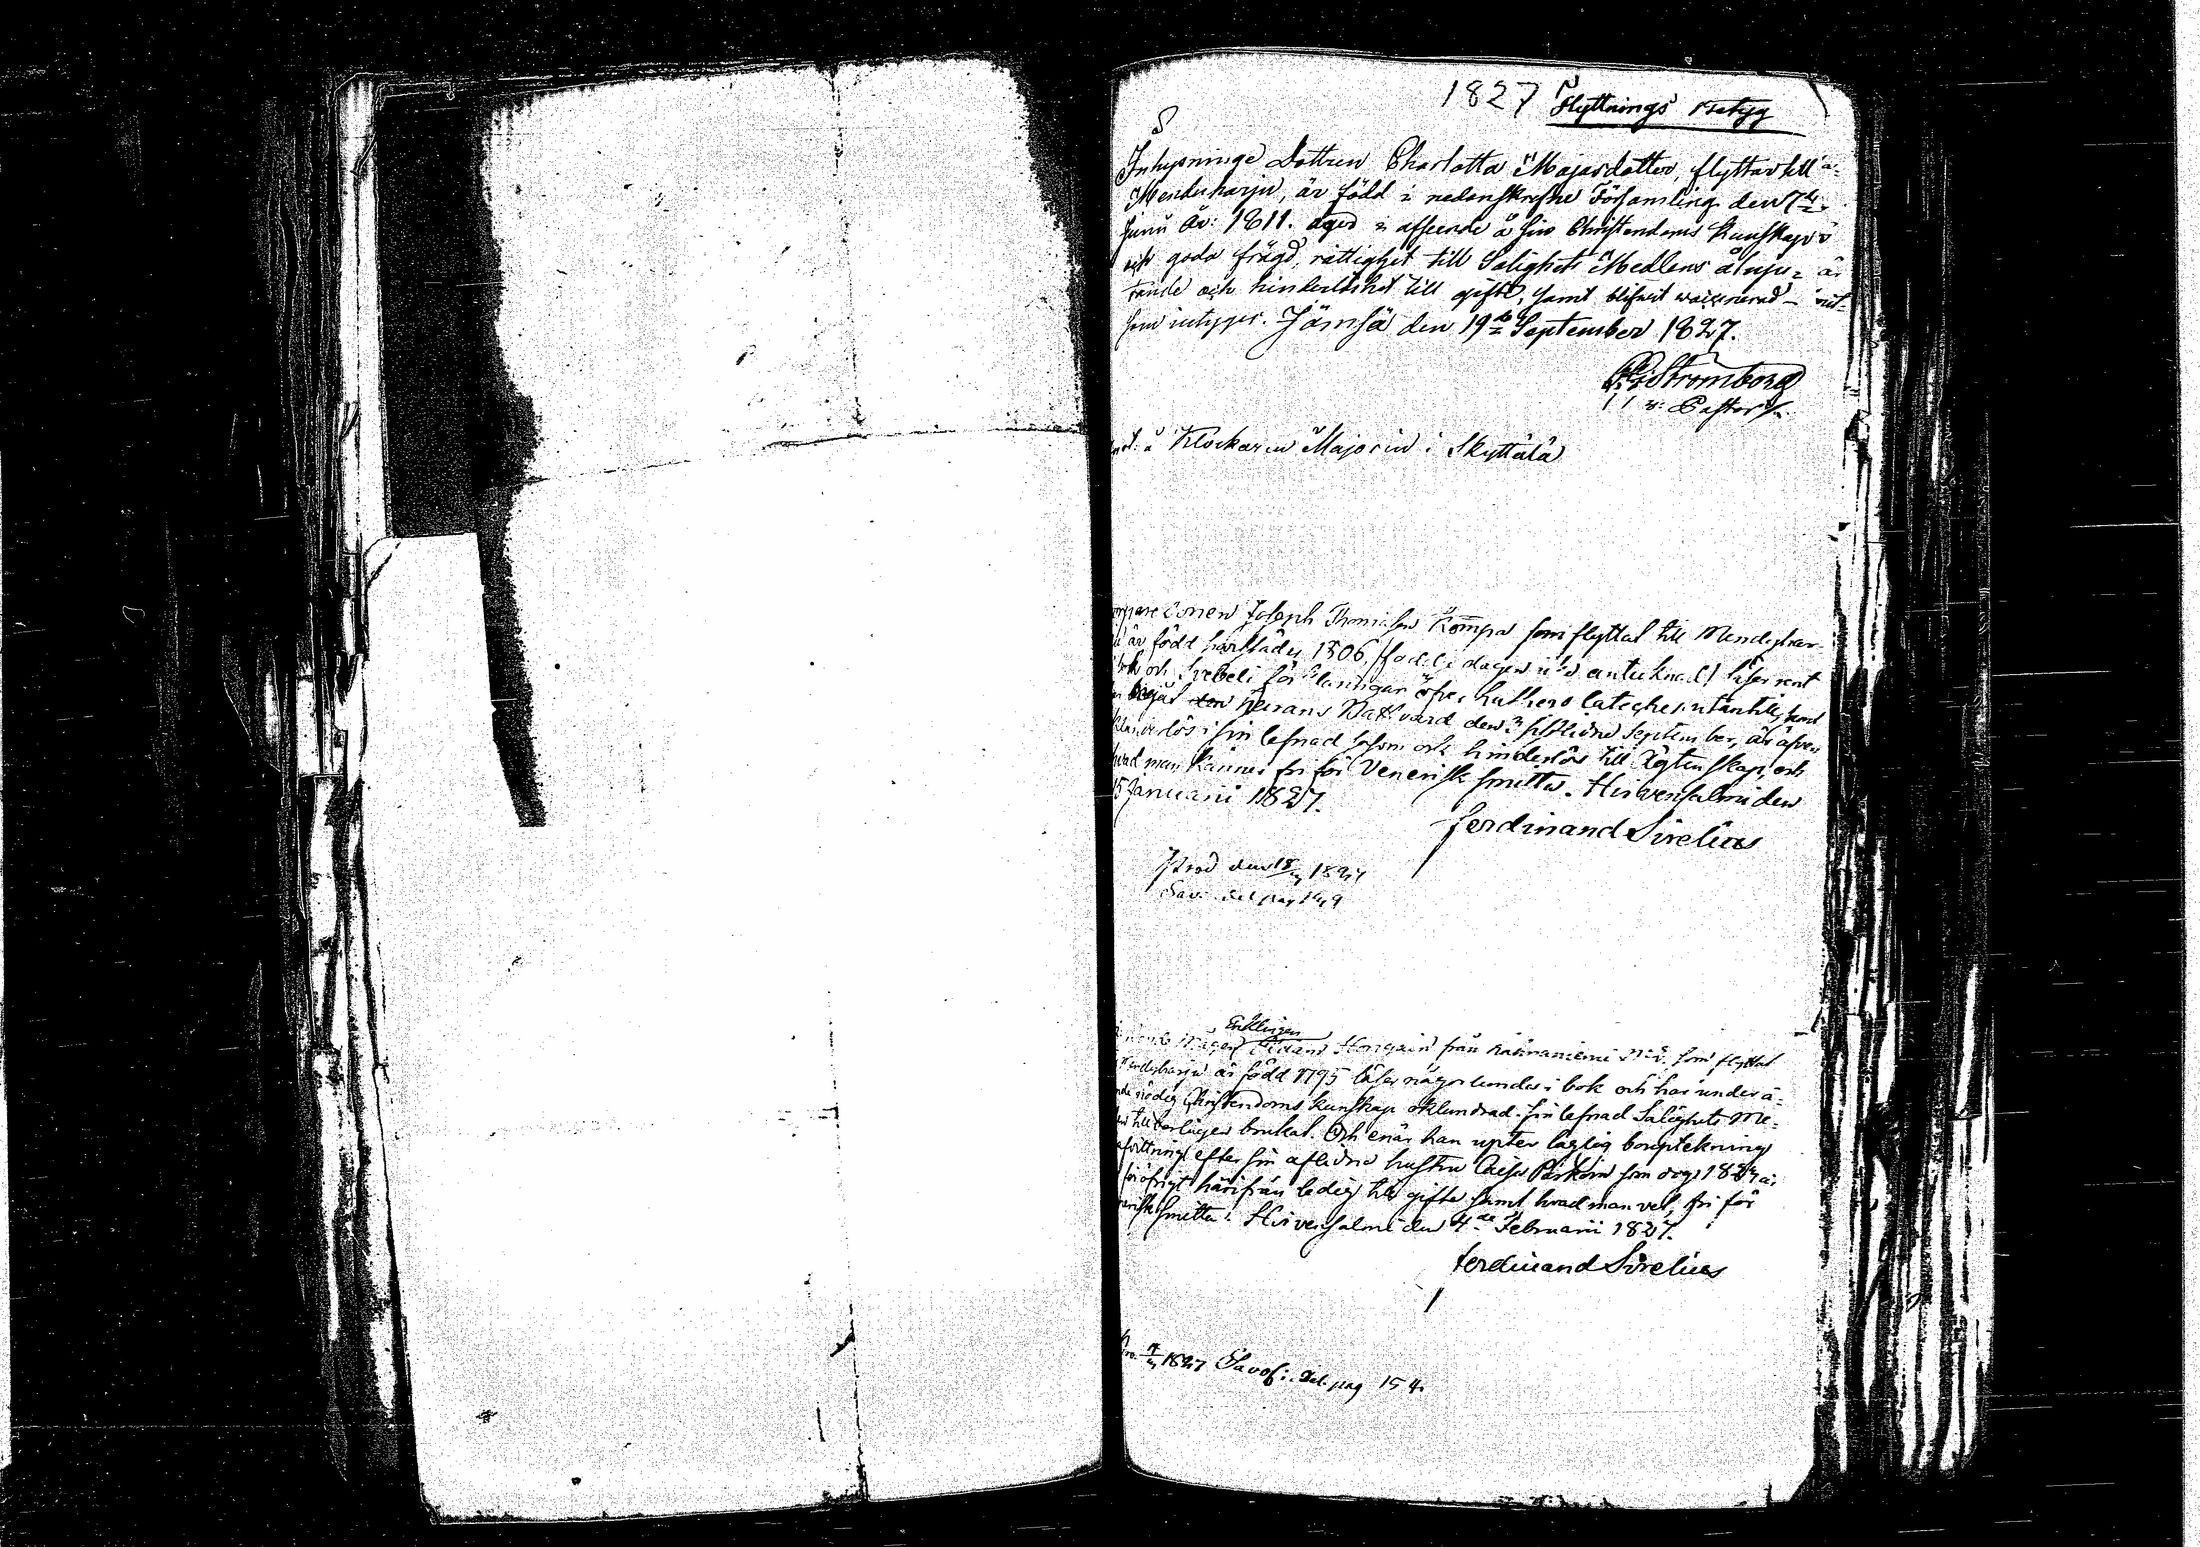 1827 Flyttnings Betyg
Inhysninge Dottren Charlotta Majasdotter, flyttar till
Menduharju, är född i nedanskrefne Församling den 7de
Junii år: 1811. äger i afseende å sin Christendoms kunskap
och goda frägd, rättighet till Salighets Medlens åtnju-
tande och hinderlöshet till gifte, samt blifvit vaccinerad
som intygas. Jämsä den 19de September 1827.
Stromborg
v: Pastor
å Klockaren Majorin i Skyttälä
Sonen Joseph Thomasson Kompa som flyttat till Mendyhar-
är född härstädes 1806, läser rent
bok och Svebelii förklaringar öfver Lutheri Cateches utantill, samt
begåt den Herrans Nattvard den sistlidne September, är äfven
i sin lefnad såsom ock hinderlös till Ägtenskap, och
hvad man känner fri för Venerisk smitta. Hirvensalmi den
15 Januarii 1827.
Ferdinand Sirelius
Prod den 18 1827
Sav: del pag 149
Enklingen
Hongain från som flyttat
är född 1795 läser någorlunda i bok och har under å-
nödig Christendoms kunskap oklandrad i sin lefnad Salighets Me-
brukat. Och enär han uptee laglig bouptekning
efter sin aflidne hustru Caisa som dog 1824 är
för öfrigt härifrån ledig till gifte samt hvad man vet, fri för
smitta. Hirvensalmi den 4de Februarii 1827.
Ferdinand Sirelius
1827 Savol: del. pag 154